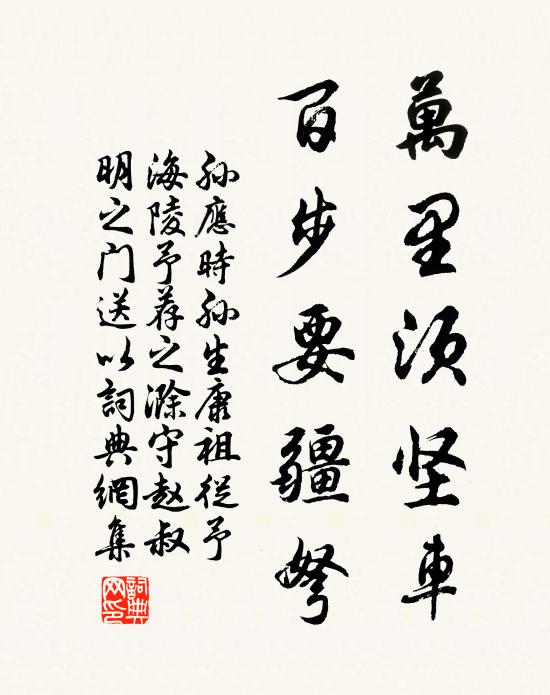 萬里須堅車
百步要疆弩
孙應時孙生康祖從予
海陵予荐之滁守赵叔
明之门送以詞典網集
詞典网印